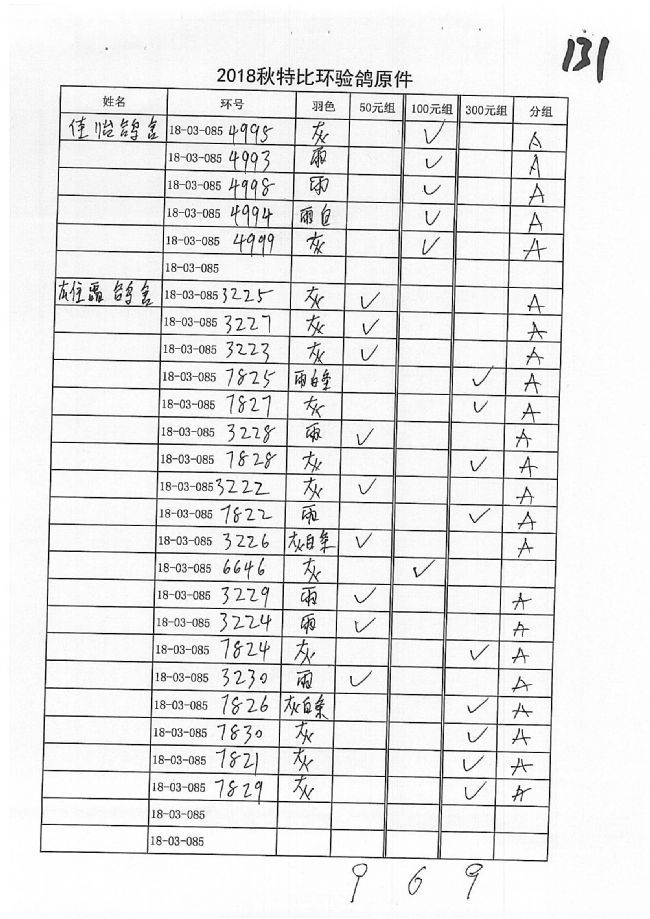 131
2018秋特比环验鸽原件
姓名 环号 羽色 50元组 100元组 300元组 分组
佳怡鸽舍 18-03-085 4995 灰 ✓ A
18-03-085 4993 雨 ✓ A
18-03-085 4998 雨 ✓ A
18-03-085 4994 雨白 ✓ A
18-03-085 4999 灰 ✓ A
18-03-085
鸽舍 18-03-085 3225 灰 ✓ A
18-03-085 3227 灰 ✓ A
18-03-085 3223 灰 ✓ A
18-03-085 7825 雨白条 ✓ A
18-03-085 7827 灰 ✓ A
18-03-085 3228 雨 ✓ A
18-03-085 7828 灰 ✓ A
18-03-085 3222 灰 ✓ A
18-03-085 7822 雨 ✓ A
18-03-085 3226 灰白条 ✓ A
18-03-085 6646 灰 ✓
18-03-085 3229 雨 ✓ A
18-03-085 3224 雨 ✓ A
18-03-085 7824 灰 ✓ A
18-03-085 3230 雨 ✓ A
18-03-085 7826 灰白条 ✓ A
18-03-085 7830 灰 ✓ A
18-03-085 7821 灰 ✓ A
18-03-085 7829 灰 ✓ A
18-03-085
18-03-085
9 6 9